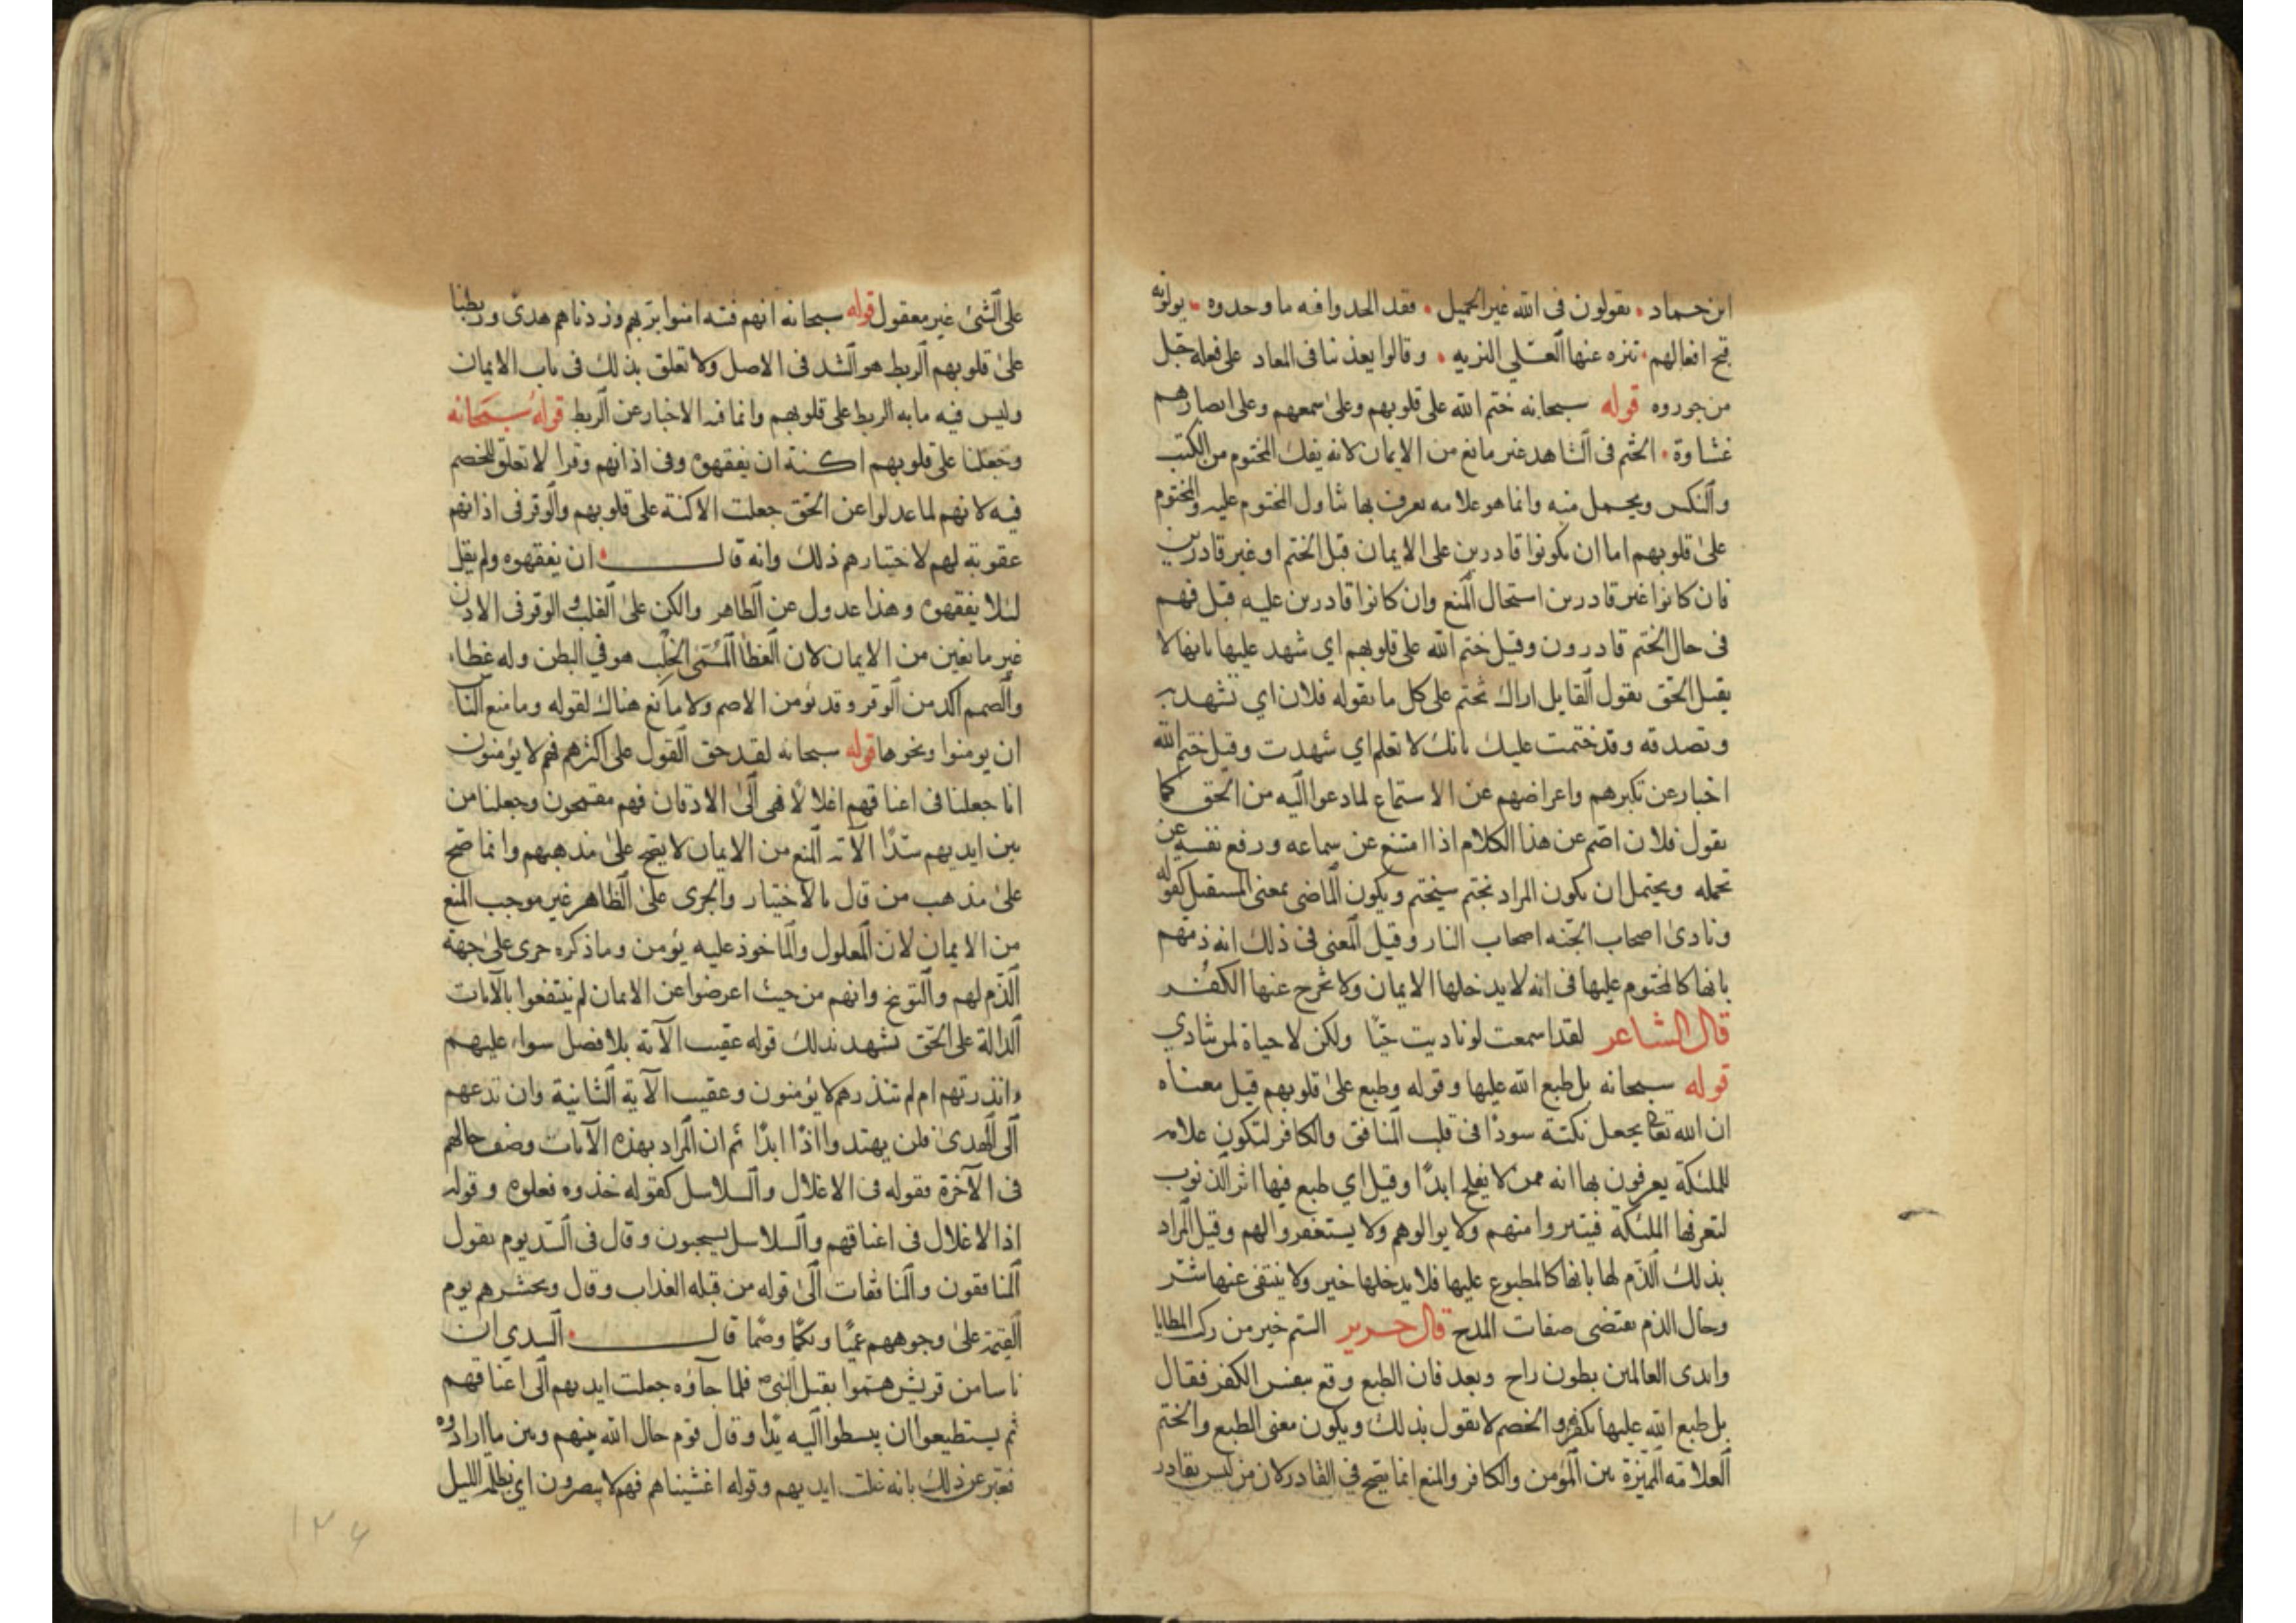 ابن حماد • يقولون في الله غير الجميل • فقد الحدوا فيه ما وحدوه • يولونه
قبح افعالهم • تنزه عنها العلي النزيه • وقالوا يعذبنا في المعاد على فعله جل
من جوروه قوله سبحانه ختم الله على قلوبهم وعلى سمعهم وعلى ابصارهم
غشاوة • الختم في الشاهد غير مانع من الايمان لانه يفك المختوم من الكتب
والكيس ويحمل منه وانما هو علامه يعرف بها تناول المختوم عليه والمختوم
على قلوبهم اما ان يكونوا قادرين على الايمان قبل الختم او غير قادرين
فان كانوا غير قادرين استحال المنع وان كانوا قادرين عليه قبل فهم
في حال الختم قادرون وقيل ختم الله على قلوبهم اي شهد عليها بانها لا
يقبل الحق يقول القايل اراك تختم على كل ما يقوله فلان اي تشهد به
وتصدقه وقد ختمت عليك بانك لا تعلم اي شهدت وقيل ختم الله
اخبار عن تكبرهم واعراضهم عن الاستماع لما دعوا اليه من الحق كما
يقول فلان اصم عن هذا الكلام اذا امتنع عن سماعه ورفع نفسه عن
تحمله ويحتمل ان يكون المراد بختم سيختم ويكون الماضي بمعنى المستقبل كقوله
ونادى اصحاب الجنه اصحاب النار وقيل المعنى في ذلك انه ذمهم
بانها كالمختوم عليها في انه لا يدخلها الايمان ولا تخرج عنها الكفر
قال الشاعر لقد اسمعت لو ناديت حيا ولكن لا حياة لمن تنادي
قوله سبحانه بل طبع الله عليها وقوله وطبع على قلوبهم قيل معناه
ان الله تعالى يجعل نكتة سودا في قلب المنافق والكافر لتكون علامه
للملئكة يعرفون بها انه ممن لا يفلح ابدا وقيل اي طبع فيها اثر الذنوب
لتعرفها الملئكة فيتبروا منهم ولا يوالوهم ولا يستغفروا لهم وقيل المراد
بذلك الذم لها بانها كالمطبوع عليها فلا يدخلها خير ولا ينتفي عنها شر
وحال الذم يقتضي صفات المدح قال جرير الستم خير من ركب المطايا
واندى العالمين بطون راح وبعد فان الطبع وقع بنفس الكفر فقال
بل طبع الله عليها بكفرهم والخصم لا يقول بذلك ويكون معنى الطبع والختم
العلامه المميزة بين المؤمن والكافر والمنع انما يصح في القادر لان من ليس بقادر
على الشئ غير معقول قوله سبحانه انهم فتيه امنوا بربهم وزدناهم هدى وربطنا
على قلوبهم الربط هو الشد في الاصل ولا تعلق بذلك في باب الايمان
وليس فيه ما به الربط على قلوبهم وانما فيه الاخبار عن الربط قوله سبحانه
وجعلنا على قلوبهم اكنة ان يفقهوه وفي اذانهم وقرا لا تعلق للخصم
فيه لانهم لما عدلوا عن الحق جعلت الاكنة على قلوبهم والوقر في اذانهم
عقوبة لهم لاختيارهم ذلك وانه قال • ان يفقهوه ولم يقل
لئلا يفقهوه وهذا عدول عن الظاهر والكن على القلب والوقر في الاذن
غير مانعين من الايمان لان الغطا المسمى الخلب هو في البطن وله غطاء
والصمم اكد من الوقر وقد يؤمن الاصم ولا مانع هناك لقوله وما منع الناس
ان يومنوا ونحوها قوله سبحانه لقد حق القول على اكثرهم فهم لا يؤمنون
انا جعلنا في اعناقهم اغلالا فهي الى الاذقان فهم مقمحون وجعلنا من
بين ايديهم سدا الآية المنع من الايمان لا يصح على مذهبهم وانما صح
على مذهب من قال بالاختيار والجرى على الظاهر غير موجب المنع
من الايمان لان المغلول والماخوذ عليه يؤمن وما ذكره جرى على جهة
الذم لهم والتوبيخ وانهم من حيث اعرضوا عن الايمان لم ينتفعوا بالآيات
الدالة على الحق تشهد بذلك قوله عقيب الآية بلا فصل سواء عليهم
ءانذرتهم ام لم تنذرهم لا يؤمنون وعقيب الآية الثانية وان تدعهم
الى الهدى فلن يهتدوا اذا ابدا ثم ان المراد بهذه الآيات وصف حالهم
في الآخرة فقوله في الاغلال والسلاسل كقوله خذوه فغلوه وقوله
اذ الاغلال في اعناقهم والسلاسل يسحبون وقال في السد يوم يقول
المنافقون والمنافقات الى قوله من قبله العذاب وقال ونحشرهم يوم
القيمة على وجوههم عميا وبكما وصما قال • السدي ان
ناسا من قريش هموا بقتل النبي فلما جآؤه جعلت ايديهم الى اعناقهم
ثم يستطيعوا ان يبسطوا اليه يدا وقال قوم حال الله بينهم وبين ما ارادوه
فعبر عن ذلك بانه غلت ايديهم وقوله اغشيناهم فهم لا يبصرون اي بظلمة الليل
١٣٦